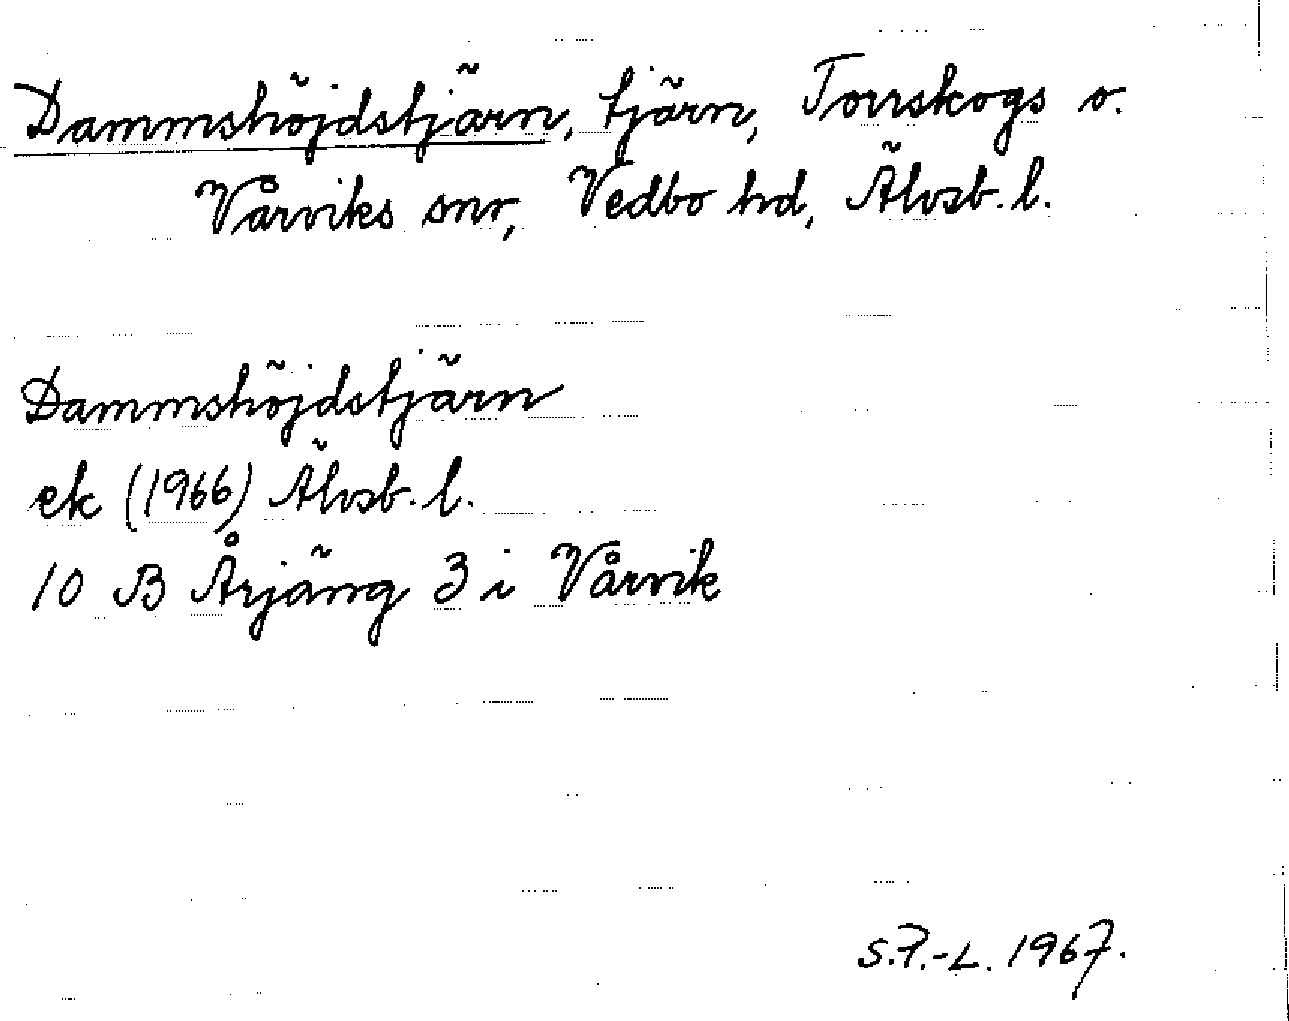 Dammshöjdstjärn, tjärn, Torrskogs o.
Vårviks snr, Vedbo hd, Älvsb. l.
Dammshöjdstjärn
ek (1966) Älvsb. l.
10 B Årjäng 3 i Vårvik
S.P.-L. 1967.